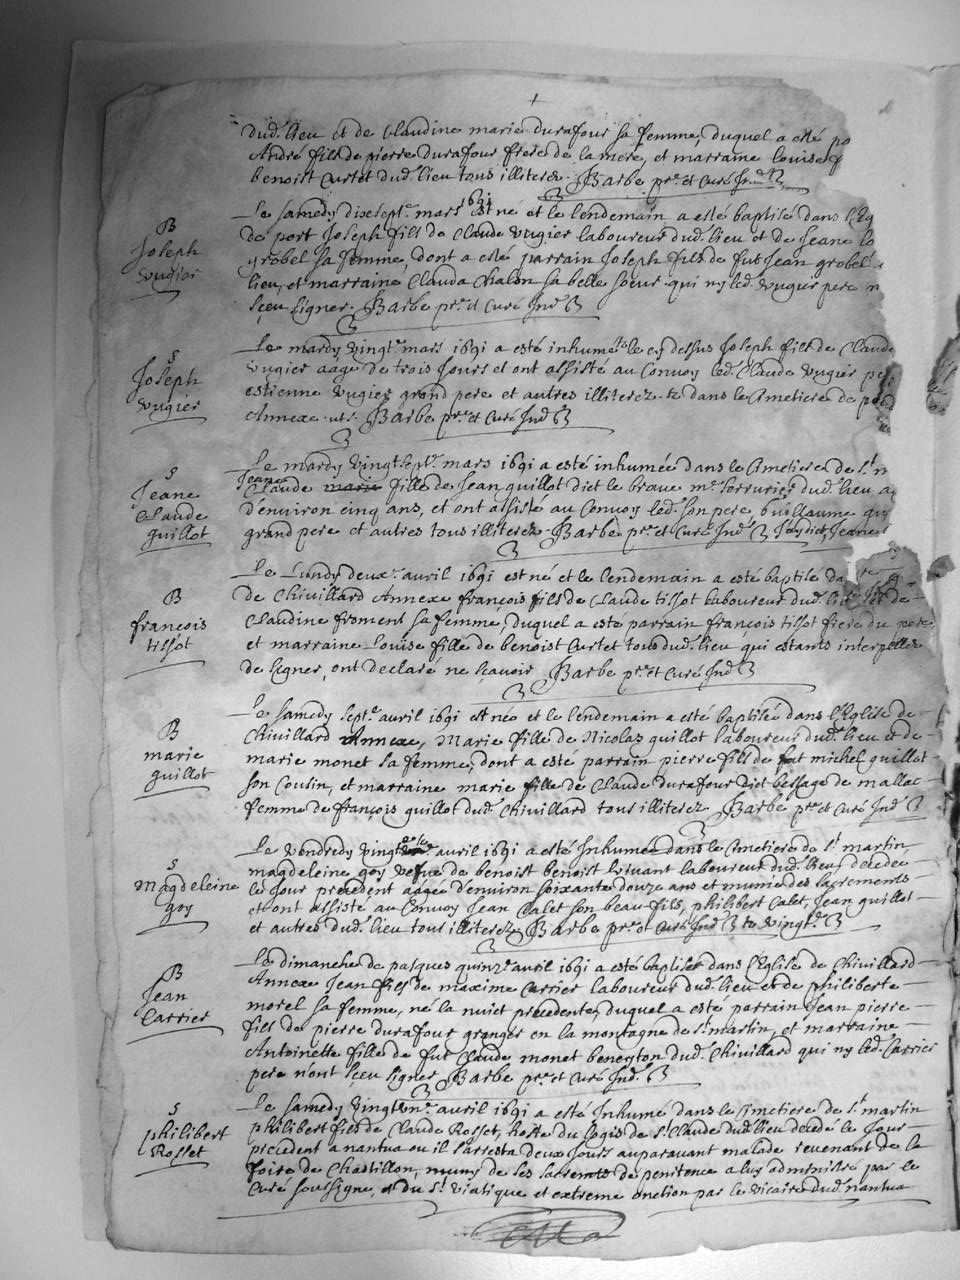 dud. lieu et de Claudine marie durafour sa femme, duquel a esté
André fils de pierre durafour frere de la mere, et marraine louise
benoist Curtet dud. lieu tous illiterez. Barbe pre. et Curé Ind.
B
Joseph
vugier
Le samedy dixsept.e mars 1691 est né et le lendemain a esté baptisé dans l'Eg
de port Joseph fils de Claude vugier laboureur dud. lieu et de Jeane
grobel sa femme, dont a esté parrain Joseph fils de fut Jean grobel
lieu, et marraine Clauda Chalon sa belle soeur qui ny led. vugier pere n
sceu signer. Barbe pre. et Curé Ind.
S
Joseph
vugier
Le mardy vingt.e mars 1691 a esté inhumé le cy dessus Joseph fils de Claude
vugier aagé de trois Jours et ont assisté au Convoy led. Claude vugier pere
estienne vugier grand pere et autres illiterez dans le Cimetiere de port
Annexe Barbe pre. et Curé Ind.
S
Jeane
Claude
guillot
Le mardy vingtsept.e mars 1691 a esté inhumée dans le Cimetiere de St. m
Jeane
Claude marie fille de Jean guillot dict le braue me. serrurier dud. lieu a
d'environ cinq ans, et ont assisté au Convoy led. son pere, guillaume gu
grand pere et autres tous illiterez Barbe pre. et Curé Ind. Jeane
B
françois
tissot
Le Lundy deux.e avril 1691 est né et le lendemain a esté baptisé da
de Chivillard Annexe françois fils de Claude tissot laboureur dud. lieu et de
Claudine froment sa femme, duquel a esté parrain françois tissot frere du pere
et marraine Louise fille de benoist Curtet tous dud. lieu qui estants interpellez
de signer, ont declaré ne sçavoir Barbe pre. et Curé Ind.
B
marie
guillot
Le samedy sept.e avril 1691 est née et le lendemain a esté baptisée dans l'Eglise de
Chivillard Annexe, Marie fille de Nicolas guillot laboureur dud. lieu et de
marie monet sa femme, dont a esté parrain pierre fils de fut michel guillot
son Cousin, et marraine marie fille de Claude durafour dict bessage de
femme de françois guillot dud. Chivillard tous illiterez Barbe pre. et Curé Ind.
S
Magdeleine
goy
Le vendredy vingt avril 1691 a esté Inhumée dans le Cimetiere de St. martin
magdeleine goy vefve de benoist benoist vivant laboureur dud. lieu, decedee
le Jour precedent aagée d'environ soixante douze ans et munie des sacrements
et ont assisté au Convoy Jean Calet son beau fils, philibert Calet, Jean guillot
et autres dud. lieu tous illiterez Barbe pre. et Curé Ind.
B
Jean
Carrier
Le dimanche de pasques quinz.e avril 1691 a esté baptisé dans l'Eglise de Chivillard
Annexe Jean fils de maxime Carrier laboureur dud. lieu et de philiberte
morel sa femme, né la nuict precedente, duquel a esté parrain Jean pierre
fils de pierre durafour granger en la montagne de St. martin, et marraine
Antoinette fille de fut Claude monet dud. Chivillard qui ny led. Carrier
pere n'ont sceu signer Barbe pre. et Curé Ind.
S
philibert
Rosset
Le samedy vingt un.e avril 1691 a esté Inhumé dans le Cimetiere de St. martin
philibert fils de Claude Rosset, hoste du logis de St. Claude dud. lieu decedé le Jour
precedent a nantua ou il s'arresta deux Jours auparavant malade revenant de la
foire de Chastillon, muny de ses sacremts de penitence a luy administré par le
Curé soussigné, et du St. viatique et extreme onction par le vicaire dud. nantua